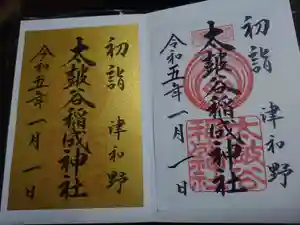 初詣 津和野
太皷谷稲成神社
令和五年一月一日
初詣 津和野
太皷谷稲成神社
令和五年一月一日
太皷谷